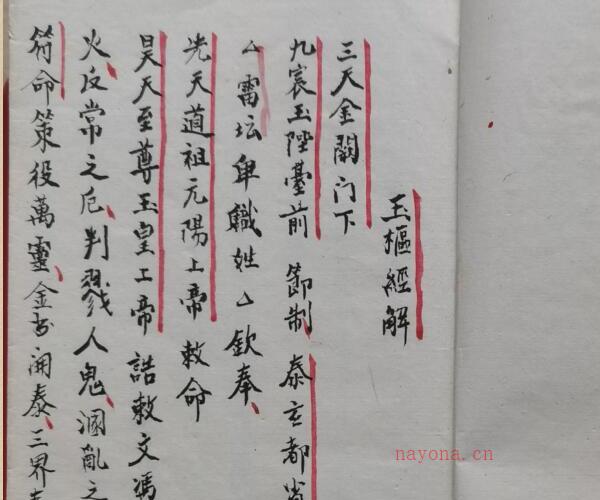 玉樞經解
三天金闕门下
九宸玉陛臺前 節制 泰玄都省
△雷坛卑職姓△欽奉
光天道祖元陽上帝 敕命
昊天至尊玉皇上帝 誥敕文馮
火反常之厄判戮人鬼溷亂之
符命策役萬靈金书開泰三界
nayona.cn